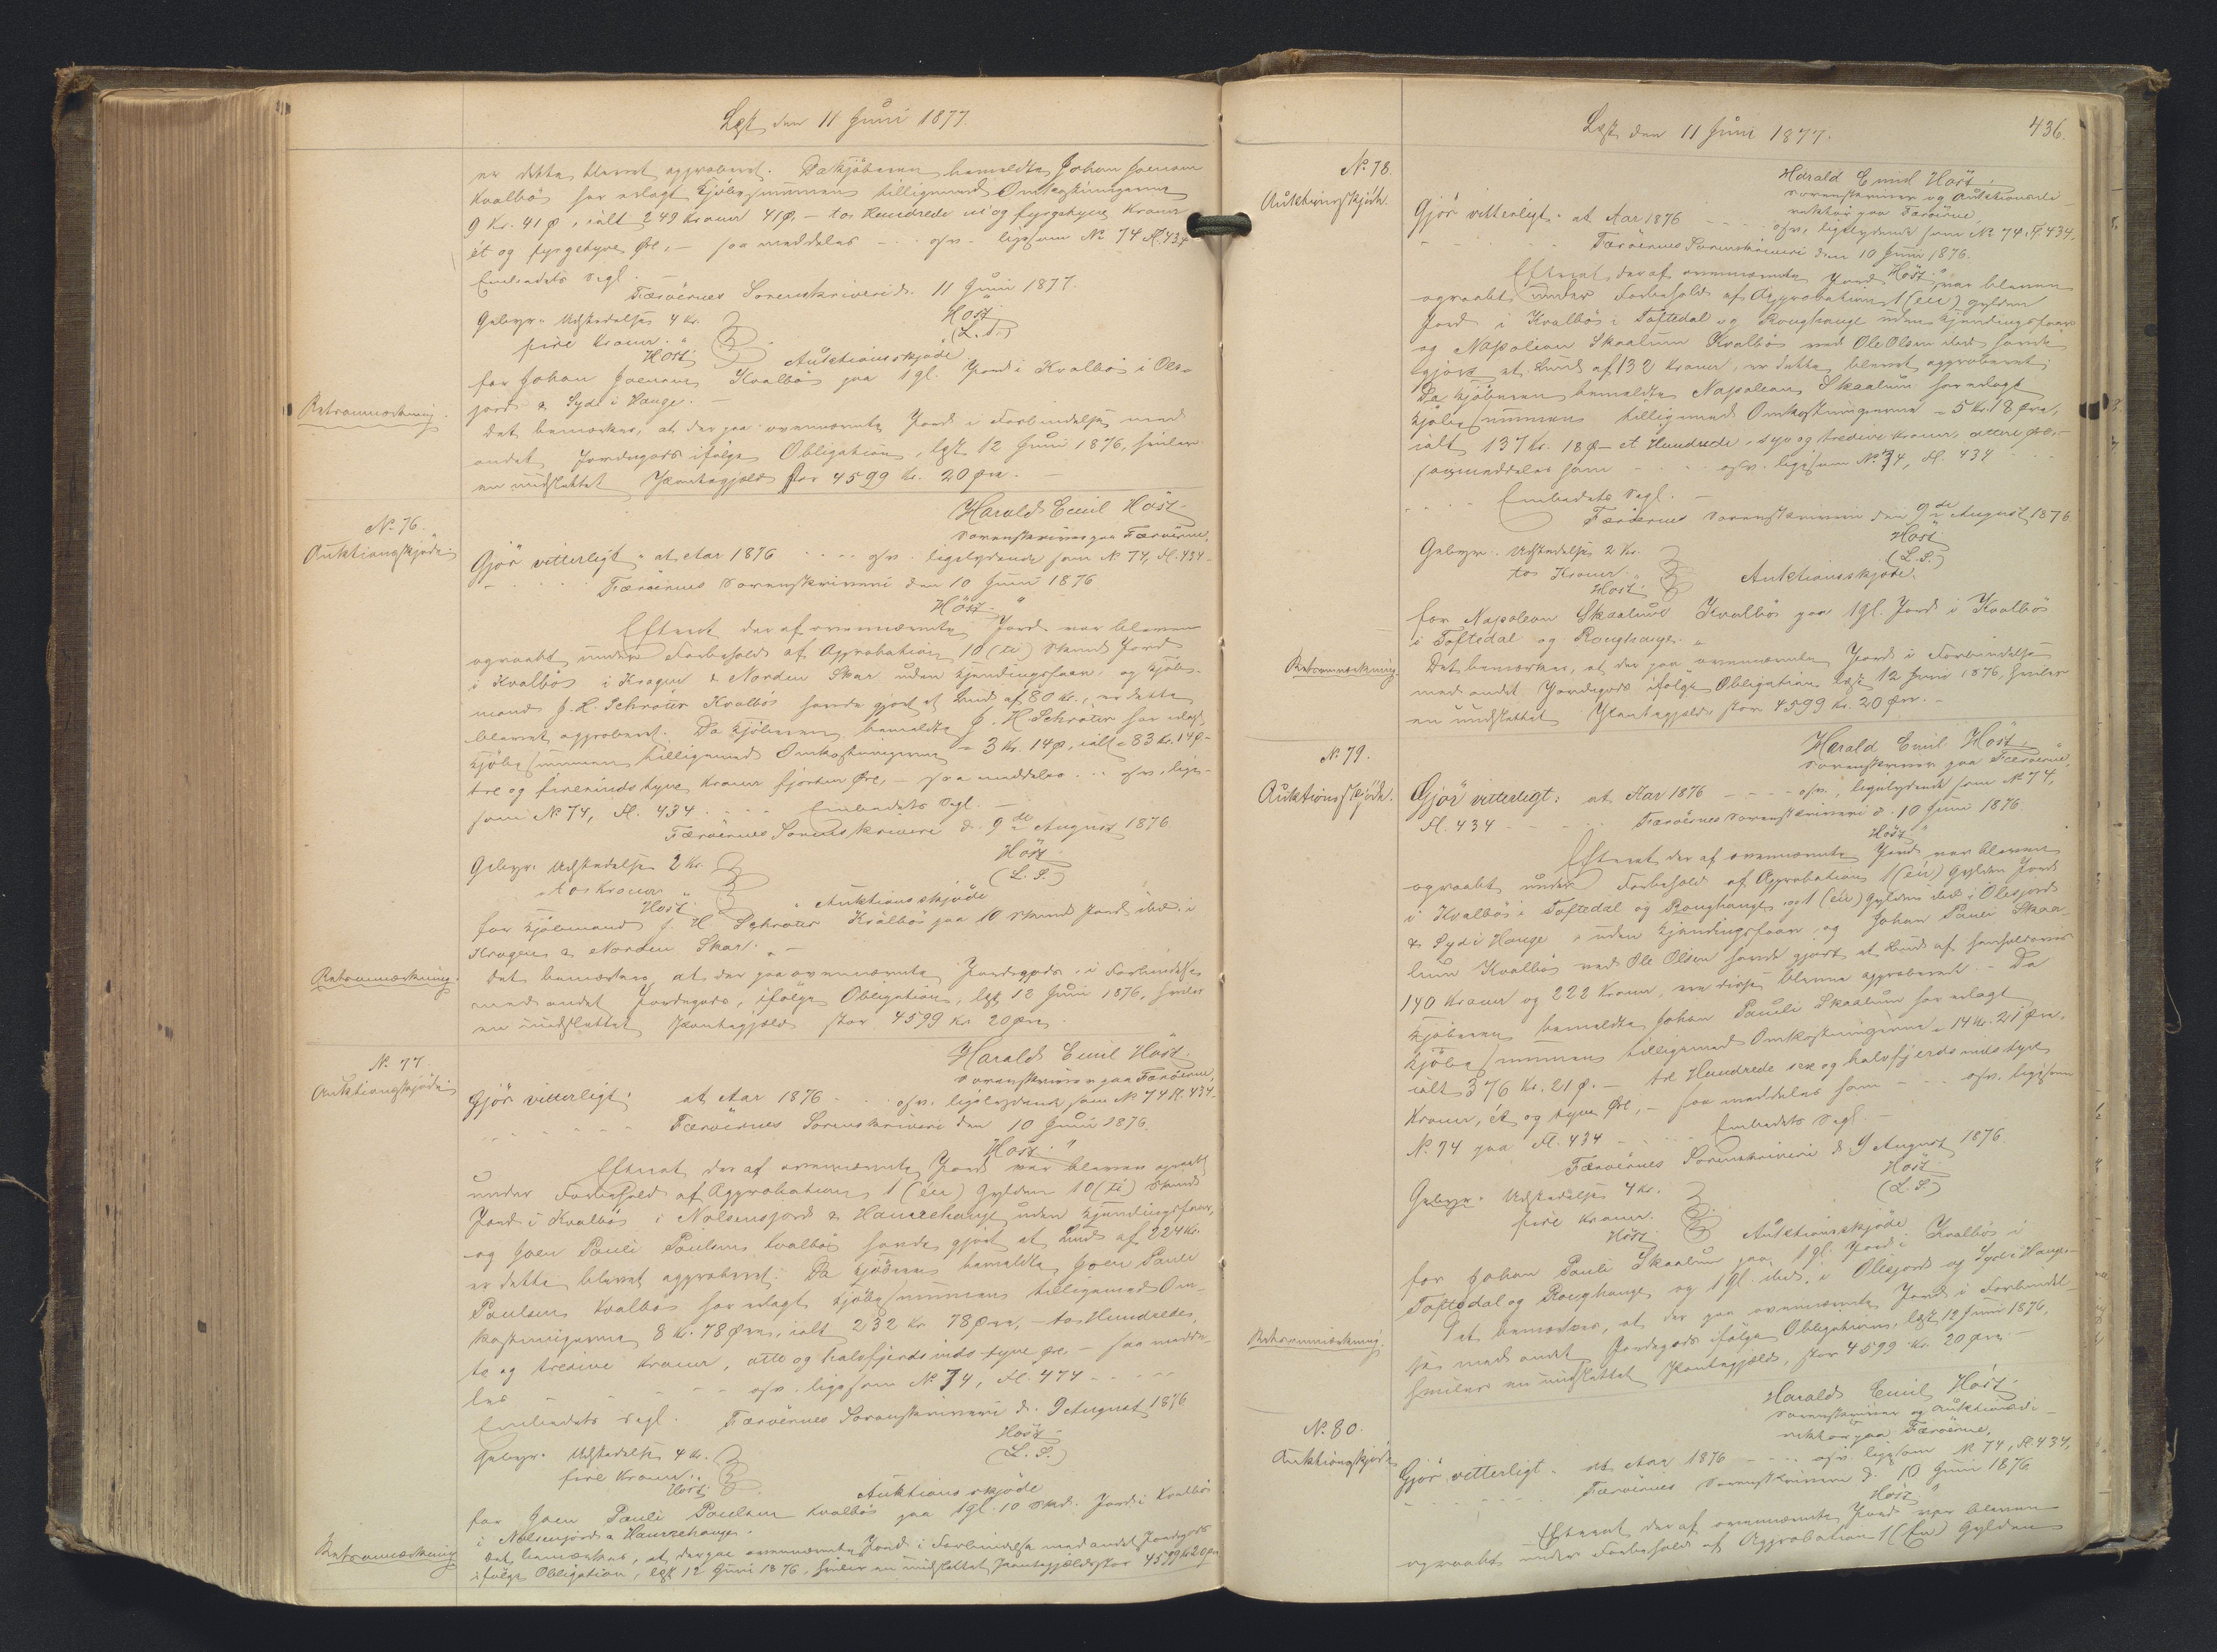 Læst den 11 Juni 1877.
er dette blevet approberet. Da Kjöberen bemeldte Johan Joensen
Kvalbö har erlagt Kjöbesummen tilligemed Omkostningerne
9 Kr. 41 Ø, ialt 249 Kroner 41 Ø, - to Hundrede ni og fyrgetyve Kroner
ét og fyrgetyve Øre, - saa meddeles - - osv. ligesom No 74 Fl. 434
Embedets Segl.
Færöernes Sorenskriveri d. 11 Juni 1877.
Höst
(L.S.)
Gebyr: Udstedelse 4 Kr.
fire Kroner.
Höst
Auktionsskjöde
for Johan Joensen Kvalbö paa 1 gl. Jord i Kvalbö i Oles-
jord & Sydi i Hauge. -
Retsanmærkning.
Det bemærkes, at der paa ovennævnte Jord i Forbindelse med
andet Jordegods ifölge Obligation, læst 12 Juni 1876, hviler
en uudslettet Pantegjæld stor 4599 Kr. 20 Øre. -
No. 76.
Auktionsskjöde.
Harald Emil Höst
Sorenskriver paa Færöerne,
Gjör vitterligt: at Aar 1876 - - - - osv. ligelydende som No 74, Fl. 434 -
Færöernes Sorenskriveri den 10 Juni 1876
Höst."
Efterat der af ovennævnte Jord var bleven
opraabt under Forbehold af Approbation 10 (ti) Skind Jord
i Kvalbö i Kragen & Norden Skar uden Kjendingsfaar, og Kjöb-
mand J. H. Schröter Kvalbö havde gjort et Bud af 80 Kr., er dette
blevet approberet. Da Kjöberen bemeldte J. H. Schröter har erlagt
Kjöbesummen tilligemed Omkostningerne = 3 Kr. 14 Ø, ialt = 83 Kr. 14 Ø -
tre og firesindstyve Kroner fjorten Øre, - saa meddeles - - osv. lige-
som No 74, Fl. 434 - - - Embedets Segl. -
Færöernes Sorenskriveri d. 9de August 1876
Höst
(L.S.)
Gebyr: Udstedelse 2 Kr.
to Kroner
Höst
Auktionsskjöde
for Kjöbmand J. H. Schröter Kvalbö paa 10 Skind Jord ibd. i
Kragen & Norden Skar. -
Retsanmærkning.
Det bemærkes, at der paa ovennævnte Jordegods i Forbindelse
med andet Jordegods, ifölge Obligation, læst 12 Juni 1876, hviler
en uudslettet Pantegjæld stor 4599 Kr. 20 Øre.
No. 77.
Auktionsskjöde.
Harald Emil Höst
Sorenskriver paa Færöerne,
Gjör vitterligt: at Aar 1876 - - osv. ligelydende som No 74 Fl. 434 -
Færöernes Sorenskriveri den 10 Juni 1876.
Höst."
Efterat der af ovennævnte Jord var bleven opraabt
under Forbehold af Approbation 1 (én) Gylden 10 (ti) Skind
Jord i Kvalbö i Nolsensjord & Hamrehauge uden Kjendingsfaar,
og Joen Pauli Poulsen Kvalbö havde gjort et Bud af 224 Kr.
er dette blevet approberet. Da Kjöberen bemeldte Joen Pauli
Poulsen Kvalbö har erlagt Kjöbesummen tilligemed Om-
kostningerne 8 Kr. 78 Øre, ialt 232 Kr 78 Øre, - to Hundrede,
to og tredive Kroner, otte og halvfjerdsindstyve Øre, - saa medde-
les - - - - osv. ligesom No. 74, Fl. 474 - - - -
Embedets Segl. Færöernes Sorenskriveri d. 9 August 1876
Höst
(L.S.)
Gebyr: Udstedelse 4 Kr.
fire Kroner.
Höst
Auktionsskjöde
for Joen Pauli Poulsen Kvalbö paa 1 gl. 10 Skd. Jord i Kvalbö
i Nolsensjord & Hamrehauge.
Retsanmærkning
Det bemærkes, at der paa ovennævnte Jord i Forbindelse med andet Jordegods
ifölge Obligation, læst 12 Juni 1876, hviler en uudslettet Pantegjæld stor 4599 Kr 20 Øre.
Læst den 11 Juni 1877.
436.
No. 78.
Auktionsskjöde
Harald Emil Höst
Sorenskriver og Auktionsdi-
rektör paa Færöerne,
Gjör vitterligt: at Aar 1876 - - - osv. ligelydende som No 74, Fl. 434.
Færöernes Sorenskriveri den 10 Juni 1876.
Höst."
Efterat der af ovennævnte Jord var bleven
opraabt under Forbehold af Approbation 1 (én) Gylden
Jord i Kvalbö i Toftedal og Roughauge uden Kjendingsfaar
og Napoleon Skaalum Kvalbö ved Ole Olsen ibd. havde
gjort et Bud af 132 Kroner, er dette blevet approberet;
Da Kjöberen bemeldte Napoleon Skaalum har erlagt
Kjöbesummen tilligemed Omkostningerne = 5 Kr. 18 Øre,
ialt 137 Kr. 18 Ø - et Hundrede, syv og tredive Kroner, atten Øre, -
saa meddeles som - - osv. ligesom No. 74, Fl. 434
Embedets Segl. -
Færöernes Sorenskriveri den 9de August 1876
Höst
(L.S.)
Gebyr: Udstedelse 2 Kr.
to Kroner.
Höst
Auktionsskjöde.
for Napoleon Skaalum Kvalbö paa 1 gl. Jord i Kvalbö
i Toftedal og Roughauge.
Retsanmærkning.
Det bemærkes, at der paa ovennævnte Jord i Forbindelse
med andet Jordegods ifölge Obligation læst 12 Juni 1876, hviler
en uudslettet Pantegjæld, stor 4599 Kr. 20 Øre. -
No. 79.
Auktionsskjöde.
Harald Emil Höst
Sorenskriver paa Færöerne,
Gjör vitterligt: at Aar 1876 - - - - osv., ligelydende som No 74,
Fl. 434 - - - Færöernes Sorenskriveri d. 10 Juni 1876
Höst"
Efterat der af ovennævnte Jord var bleven
opraabt under Forbehold af Approbation 1 (én) Gylden Jord
i Kvalbö i Toftedal og Roughauge og 1 (én) Gylden ibd. i Olesjord
& Sydi i Hauge - uden Kjendingsfaar og Johan Pauli Skaa-
lum Kvalbö ved Ole Olsen havde gjort et Bud af henholdsvis
140 Kroner og 222 Kroner, ere disse blevne approberede. - Da
Kjöberen bemeldte Johan Pauli Skaalum har erlagt
Kjöbesummen tilligemed Omkostningerne = 14 Kr. 21 Øre,
ialt 376 Kr. 21 Ø. - tre Hundrede sex og halvfjerdsindstyve
Kroner, ét og tyve Øre, - saa meddeles som - - - osv. ligesom
No. 74 paa Fl. 434 - - - - Embedets Segl -
Færöernes Sorenskriveri d. 9 August 1876.
Höst
(L.S.)
Gebyr: Udstedelse 4 Kr.
fire Kroner.
Höst
Auktionsskjöde
for Johan Pauli Skaalum paa 1 gl. Jord i Kvalbö i
Toftedal og Roughauge og 1 gl. ibd. i Olesjord og Sydi i Hauge. -
Retsanmærkning.
Det bemærkes, at der paa ovennævnte Jord i Forbindel-
se med andet Jordegods ifölge Obligation, læst 12 Juni 1876,
hviler en uudslettet Pantegjæld, stor 4599 Kr. 20 Øre. -
No. 80.
Auktionsskjöde
Harald Emil Höst
Sorenskriver og Auktionsdi-
rektör paa Færöerne,
Gjör vitterligt: at Aar 1876 - - - - osv. ligesom No 74, Fl. 434,
Færöernes Sorenskriveri d. 10 Juni 1876
Höst"
Efterat der af ovennævnte Jord var bleven
opraabt under Forbehold af Approbation 1 (En) Gylden